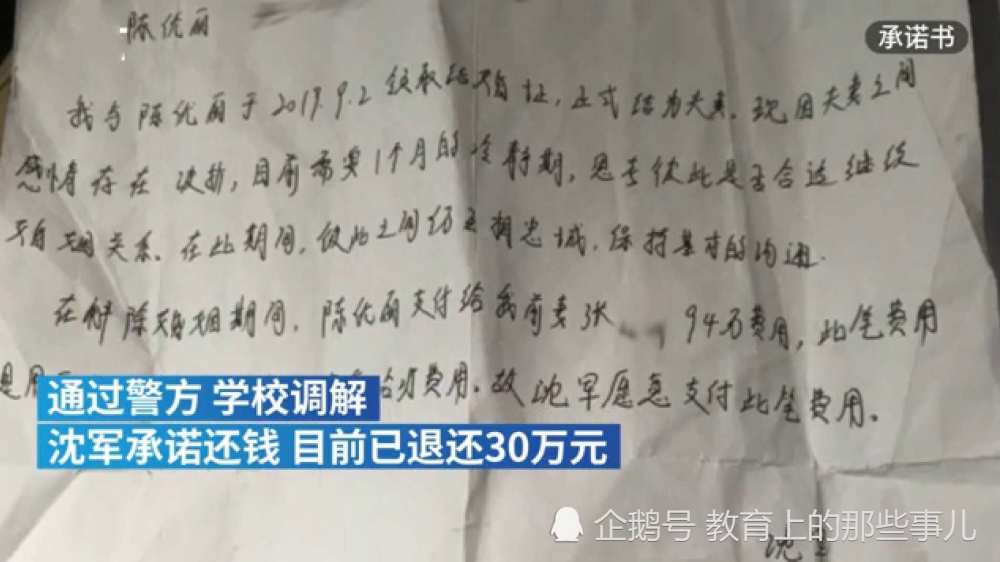 承诺书
陈优丽
我与陈优丽于2019.9.2领取结婚证,正式结为夫妻。现因夫妻之间
感情存在波折,目前需要1个月的冷静期,思考彼此是否合适继续
婚姻关系。在此期间,彼此之间仍互相忠诚,保持基本的沟通.
在解除婚姻期间,陈优丽支付给我前妻张 94万费用,此笔费用
是用 费用。故沈军愿意支付此笔费用。
通过警方 学校调解
沈军承诺还钱 目前已退还30万元
沈
企鹅号 教育上的那些事儿